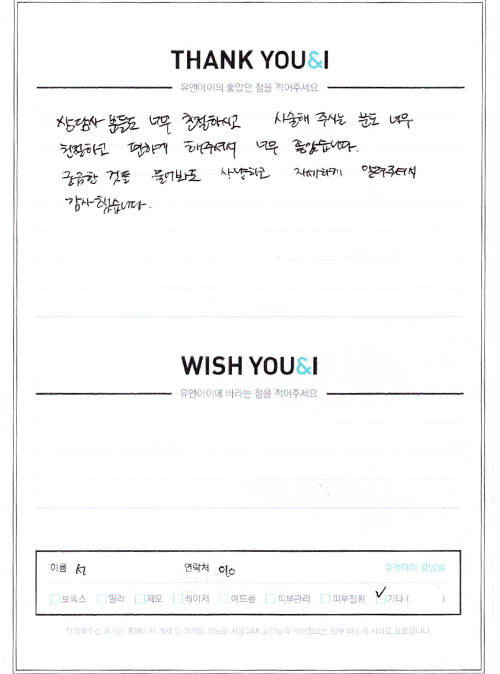 THANK YOU&I
유앤아이의 좋았던 점을 적어주세요
상담사 분들도 너무 친절하시고 시술해 주시는 분도 너무
친절하고 편하게 해주셔서 너무 좋았습니다.
궁금한 것들 물어봐도 상냥하고 자세하게 알려주셔서
감사했습니다.
WISH YOU&I
유앤아이에 바라는 점을 적어주세요
이름 서 연락처 010 유앤아이 강남점
보톡스 필러 제모 레이저 여드름 피부관리 피부질환 ✓기타 ( )
작성해주신 후기는 홈페이지 게재 및 마케팅 용도로 사용되며 고객님의 개인정보는 일부 비공개 처리로 보호됩니다.